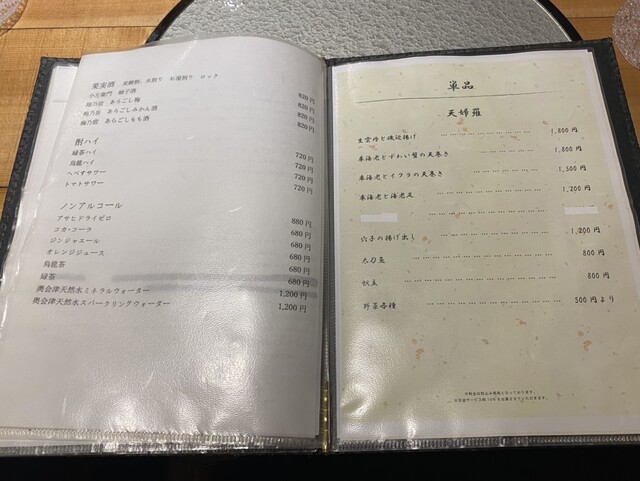 果実酒 炭酸割、水割り お湯割り ロック
小左衛門 柚子酒 820円
梅乃宿 あらごし梅 820円
梅乃宿 あらごしみかん酒 820円
梅乃宿 あらごしもも酒 820円
酎ハイ
緑茶ハイ 720円
烏龍ハイ 720円
へべすサワー 720円
トマトサワー 720円
ノンアルコール
アサヒドライゼロ 880円
コカ・コーラ 680円
ジンジャエール 680円
オレンジジュース 680円
烏龍茶 680円
緑茶 680円
奥会津天然水ミネラルウォーター 1,200円
奥会津天然水スパークリングウォーター 1,200円
単品
天婦羅
生雲丹と磯辺揚げ 1,800円
車海老とずわい蟹の天巻き 1,800円
車海老とイクラの天巻き 1,500円
車海老と海老足 1,200円
穴子の揚げ出し 1,200円
太刀魚 800円
帆立 800円
野菜各種 500円より